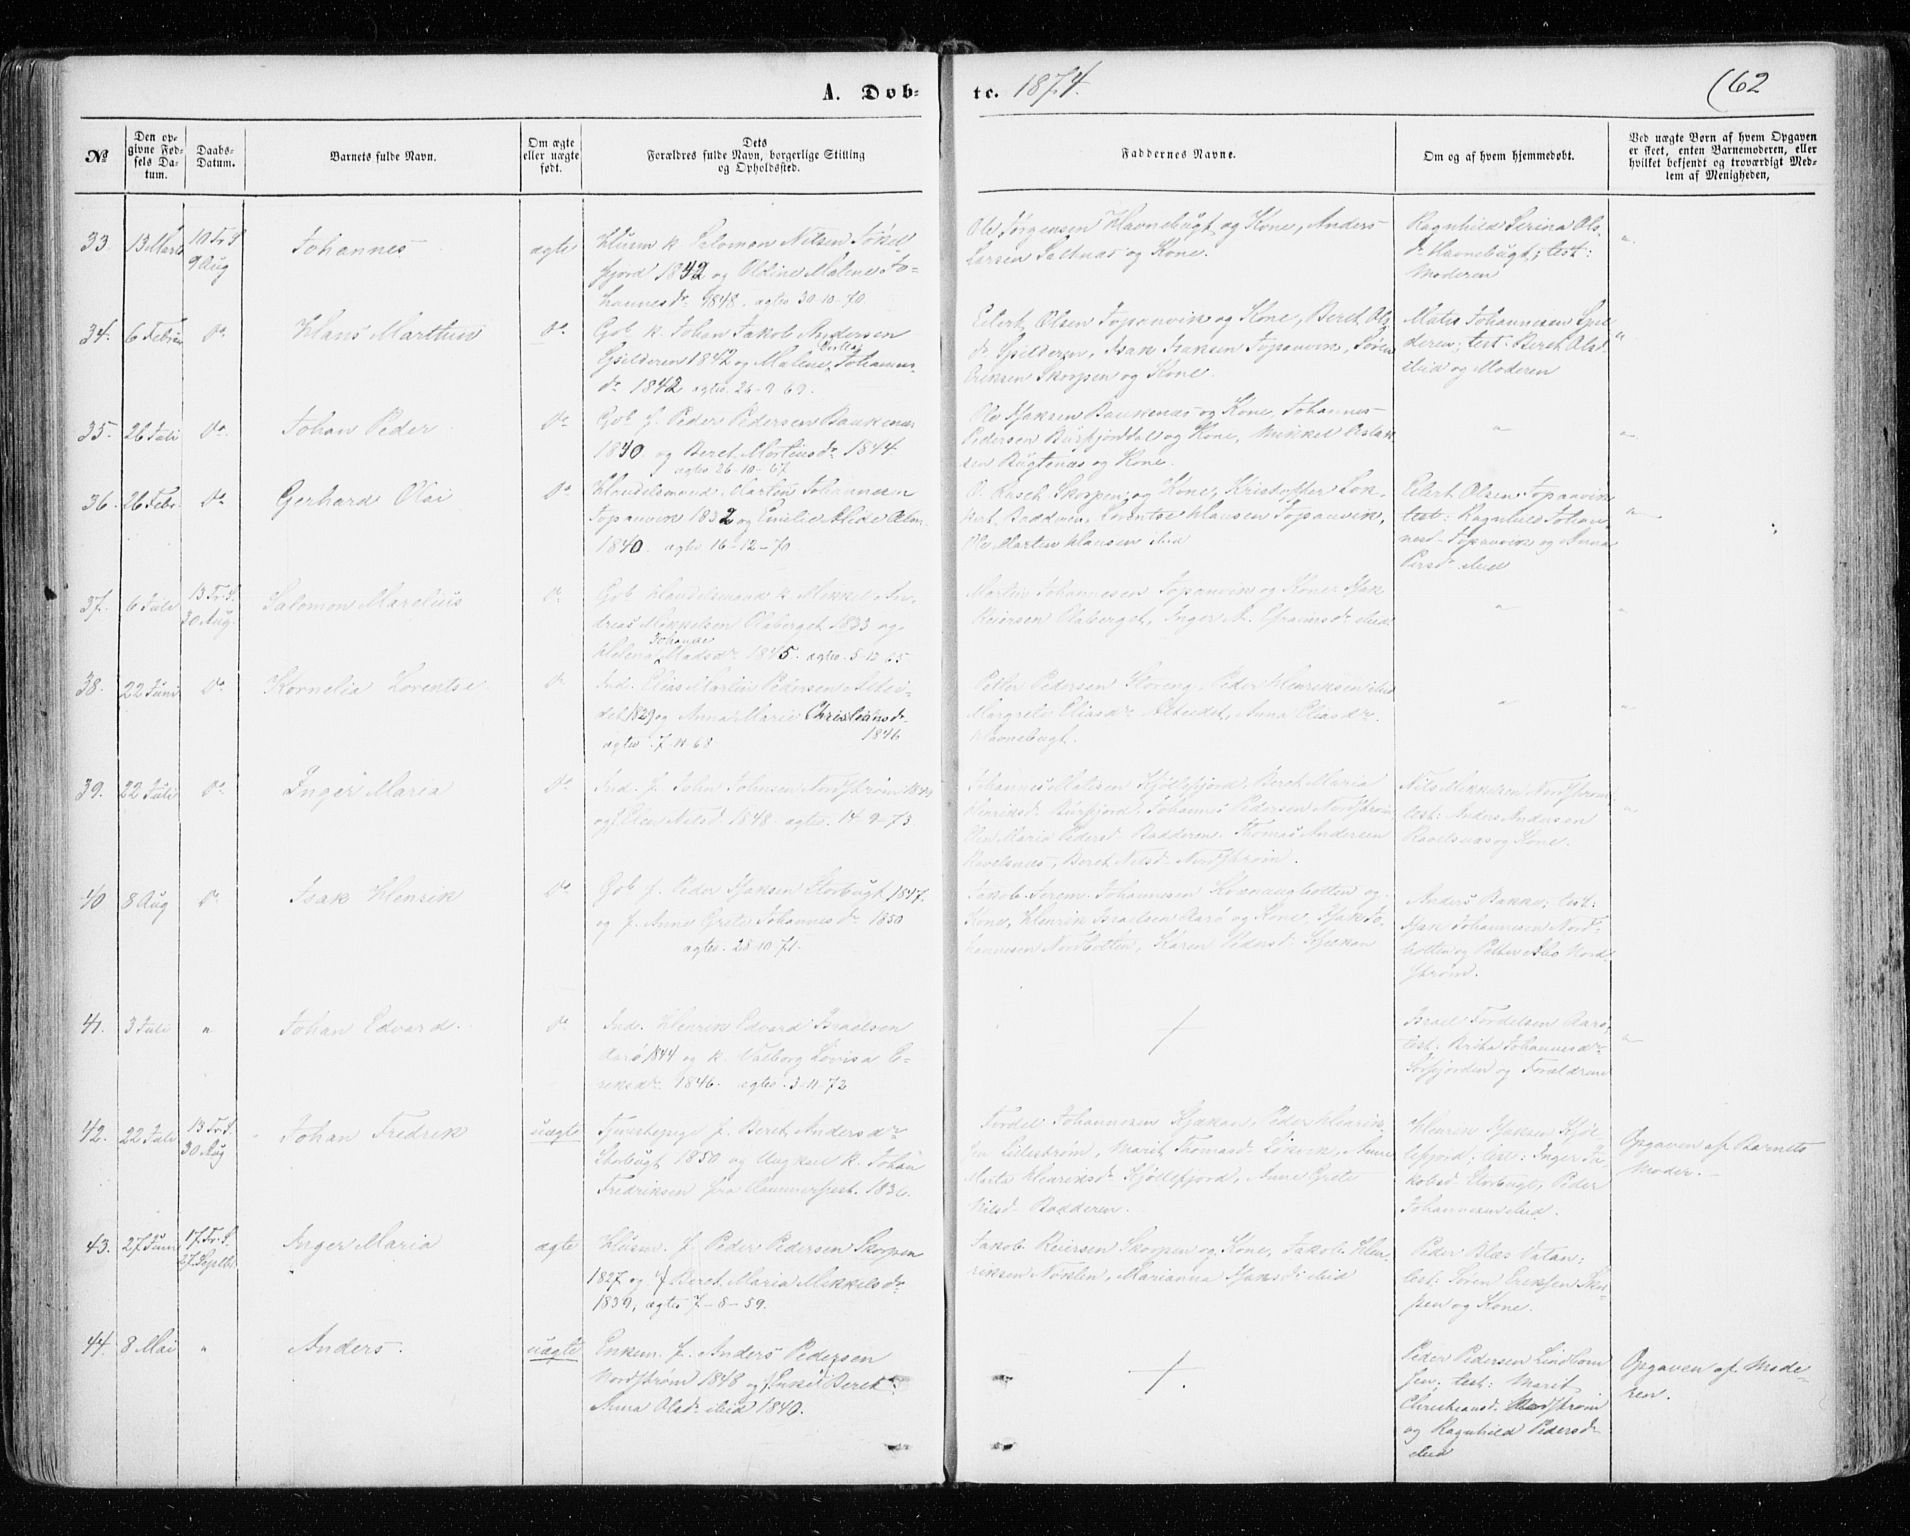 A. Døb-
te. 1874.
(62
№
Den op-
givne Fød-
sels Da-
tum.
Daabs-
Datum.
Barnets fulde Navn.
Om ægte
eller uægte
født.
Dets
Forældres fulde Navn, borgerlige Stilling
og Opholdssted.
Faddernes Navne.
Om og af hvem hjemmedøbt.
Ved uægte Børn af hvem Opgaven
er skeet, enten Barnemoderen, eller
hvilket bekjendt og troværdigt Med-
lem af Menigheden,
33. 13 Marts 10 Tr. S. 9 Aug
Johannes
ægte
Husm k. Salomon Nilsen Jøkel
fjord 1842 og Oldine Malene Jo-
hannesdr 1848. ægtev 30-10-70
Ole Jørgensen Havnebugt og Kone, Anders
Larsen Saltnæs og Kone.
Ragnhild Serina Ols
dr Havnebugt; test:
Moderen
"
34. 6 Februar Do
Hans Marthin
Do
Gob k. Johan Jakob Andersen
Spilderen 1842 og Malene Johannes
dr 1842 ægtev 26-9-69.
Eilert Olsen Toppanvik og Kone, Beret Ols
dr Spilderen, Isak Isaksen Toppanvik, Søren
Eriksen Skorpen og Kone.
Mathis Johannesen Spil
deren; test: Beret Olsd
ibid og Moderen
"
35. 26 Juli Do.
Johan Peder
Do
Gob. f. Peder Pedersen Baukenæs
1840 og Beret Mortensdr 1844
ægtev 26-10-67
Ole Isaksen Baukenæs og Kone, Johannes
Pedersen Burfjorddal og Kone, Mikkel Aslak
sen Bugtenæs og Kone.
"
"
36. 26 Febr. Do
Gerhard Olai
Do
Handelsmand Martin Johannesen
Toppanvik 1832 og Emilie Alide
1840. ægtev 16-12-70
O. Rasch Skorpen og Kone, Kristoffer Lok-
kert Badderen, Lorentse Hansen Toppanvik,
Ole Martin Hansen ibid
Eilert Olsen Toppanvik
test: Ragnhild Johan
nesd Toppanvik og Anna
Persdr ibid
"
37. 6 Juli 13 Tr. S. 30 Aug.
Salomon Marelius
Do
Gob Handelsmand k. Mikkel An-
dreas Mikkelsen Olaberget 1833 og
Helena Johanne Madsdr 1845. ægtev. 5-12-65
Martin Johannesen Toppanvik og Kone, Isak
Reiersen Olaberget, Inger M. Efraimsdr ibid
"
"
38. 22 Juni Do
Kornelia Lorentse
Do
Ind. Elias Martin Pedersen Alteidet
1829 og Anna Marie Christiansdr
1846
ægtev. 7-11-68
Petter Pedersen Storeng, Peder Henriksen ibid
Margrete Eliasdr Alteidet, Anna Eliasdr
Havnebugt.
"
"
39. 22 Juli Do
Inger Maria
Do
Ind. f. John Johnsen Nordstrøm
og Ellen Nilsd 1848. ægtev. 14-9-73
Johannes Matisen Kjøllefjord, Beret Maria
Henriksd Burfjord, Johannes Pedersen Nordstrøm,
Elen Maria Pedersd Badderen. Thomas Andersen
Ravelsnæs, Beret Nilsd Nordstrøm.
Nils Mikkelsen Nordstrøm
test: Anders Andersen
Ravelsnæs og Kone.
"
40 8 Aug Do
Isak Henrik
Do
Gob f. Peder Isaksen Storbugt 1847
og f. Anne Grete Johannesdr 1850
ægtev. 28-10-71.
Jakob Jerem. Johannesen Kvænangbotten og
Kone, Henrik Israelsen Aarø og Kone, Isak Jo-
hannesen Nordbotten, Karen Pedersd Kjækan
Anders Bakke; test:
Isak Johannesen Nord-
botten og Petter Abo Nord
strøm.
41. 3 Juli "
Johan Edvard.
Do
Ind. Henrik Edvard Israelsen
Aarø 1844 og k. Valborg Lovisa E-
riksdr 1846. ægtev. 3-11-72
+
Israel Fordelsen Aarø,
test: Brita Johannesdr
Sørfjorden og Forældrene
"
42. 22 Juli 13 Tr. S. 30 Aug
Johan Fredrik
uægte
Tjenestepige f. Beret Andersdr
Storbugt 1850 og Ungkarl k. Johan
Fredriksen fra Hammerfest. 1836.
Fordel Johannesen Kjækan, Peder Henrik
sen Lillestrøm, Marit Thomasd Løkvik, Anne
Marta Henriksd Kjøllefjord, Anne Grete
Nilsd Badderen.
Henrik Isaksen Kjøl-
lefjord; test: Inger Ja-
kobsd Storbugt, Peder
Johannesen ibid.
Opgaven af Barnets
Moder.
43. 27 Juni 17. Tr. S. 27. Septbr
Inger Maria
ægte
Husm. f. Peder Pedersen Skorpen
1827 og f. Beret Maria Mikkelsdr
1839, ægtev 7-8-59.
Jakob Reiersen Skorpen og Kone, Jakob Hen-
riksen Nøklen, Marianna Isaksd ibid
Peder Blæs Vatan;
test: Søren Eriksen Skor-
pen og Kone.
44. 8 Mai "
Anders.
uægte
Enkem. f. Anders Pedersen
Nordstrøm 1848 og f. Enke Beret
Anna Olsdr ibid 1840.
+.
Peder Pedersen Lindbom
sen. test: Marit
Christiansd Nordstrøm
og Ragnhild Pedersdr
ibid
Opgaven af Mode-
ren.